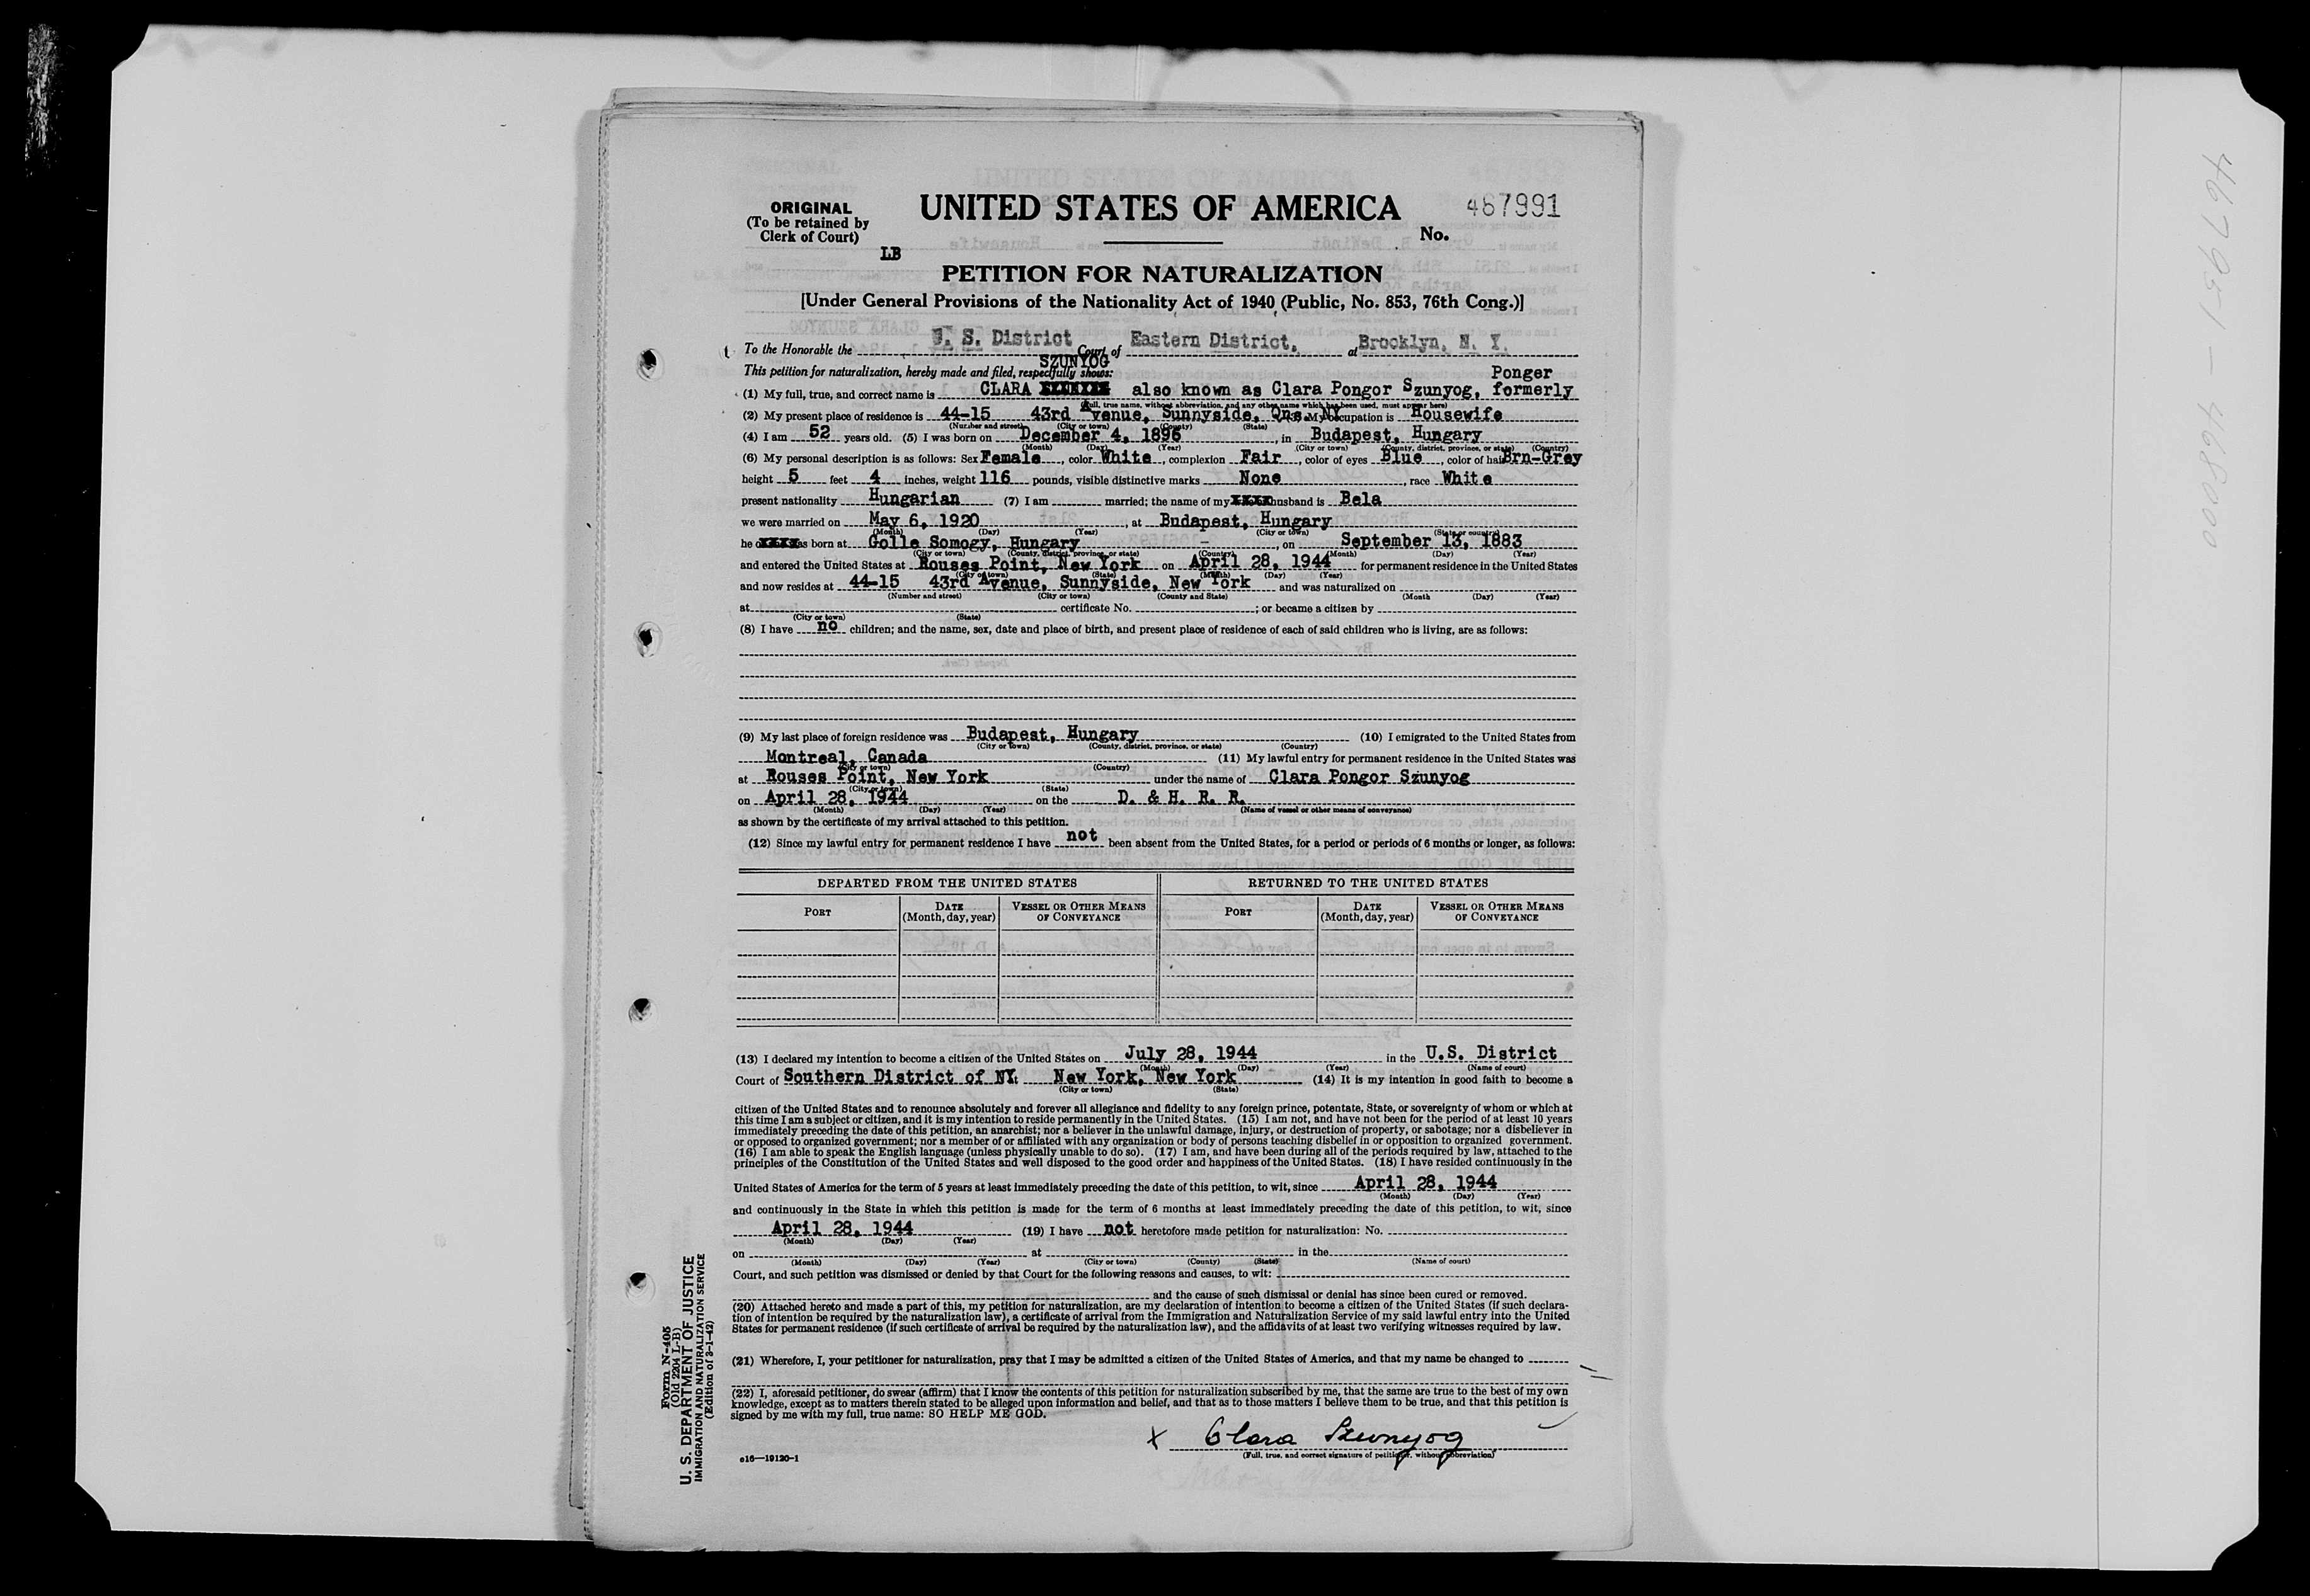 ORIGINAL
(To be retained by
Clerk of Court)
LB
UNITED STATES OF AMERICA
467991
No.
PETITION FOR NATURALIZATION
[Under General Provisions of the Nationality Act of 1940 (Public, No. 853, 76th Cong.)]
To the Honorable the U. S. District Court of Eastern District, at Brooklyn, N. Y.
SZUNYOG
This petition for naturalization, hereby made and filed, respectfully shows: Ponger
(1) My full, true, and correct name is CLARA also known as Clara Pongor Szunyog, formerly
(Full, true name, without abbreviation, and any other name which has been used, must appear here)
(2) My present place of residence is 44-15 43rd Avenue, Sunnyside, Qns. NY (3) My occupation is Housewife
(Number and street) (City or town) (County) (State)
(4) I am 52 years old. (5) I was born on December 4, 1896, in Budapest, Hungary
(Month) (Day) (Year) (City or town) (County, district, province, or state) (Country)
(6) My personal description is as follows: Sex Female, color White, complexion Fair, color of eyes Blue, color of hair Brn-Grey
height 5 feet 4 inches, weight 116 pounds, visible distinctive marks None, race White
present nationality Hungarian (7) I am married; the name of my husband is Bela
we were married on May 6, 1920, at Budapest, Hungary
(Month) (Day) (Year) (City or town) (State or country)
he was born at Golle Somogy, Hungary, on September 13, 1883
(City or town) (County, district, province, or state) (Country) (Month) (Day) (Year)
and entered the United States at Rouses Point, New York on April 28, 1944 for permanent residence in the United States
(City or town) (State) (Month) (Day) (Year)
and now resides at 44-15 43rd Avenue, Sunnyside, New York and was naturalized on
(Number and street) (City or town) (County and State) (Month (Day) (Year)
at certificate No. ; or became a citizen by
(City or town) (State)
(8) I have no children; and the name, sex, date and place of birth, and present place of residence of each of said children who is living, are as follows:
(9) My last place of foreign residence was Budapest, Hungary (10) I emigrated to the United States from
(City or town) (County, district, province, or state) (Country)
Montreal, Canada (11) My lawful entry for permanent residence in the United States was
(City or town) (Country)
at Rouses Point, New York under the name of Clara Pongor Szunyog
(City or town) (State)
on April 28, 1944 on the D. & H. R. R.
(Month) (Day) (Year) (Name of vessel or other means of conveyance)
as shown by the certificate of my arrival attached to this petition.
(12) Since my lawful entry for permanent residence I have not been absent from the United States, for a period or periods of 6 months or longer, as follows:
DEPARTED FROM THE UNITED STATES RETURNED TO THE UNITED STATES
PORT DATE (Month, day, year) VESSEL OR OTHER MEANS OF CONVEYANCE PORT DATE (Month, day, year) VESSEL OR OTHER MEANS OF CONVEYANCE
(13) I declared my intention to become a citizen of the United States on July 28, 1944 in the U.S. District
(Month) (Day) (Year) (Name of court)
Court of Southern District of NY. New York, New York (14) It is my intention in good faith to become a
(City or town) (State)
citizen of the United States and to renounce absolutely and forever all allegiance and fidelity to any foreign prince, potentate, State, or sovereignty of whom or which at
this time I am a subject or citizen, and it is my intention to reside permanently in the United States. (15) I am not, and have not been for the period of at least 10 years
immediately preceding the date of this petition, an anarchist; nor a believer in the unlawful damage, injury, or destruction of property, or sabotage; nor a disbeliever in
or opposed to organized government; nor a member of or affiliated with any organization or body of persons teaching disbelief in or opposition to organized government.
(16) I am able to speak the English language (unless physically unable to do so). (17) I am, and have been during all of the periods required by law, attached to the
principles of the Constitution of the United States and well disposed to the good order and happiness of the United States. (18) I have resided continuously in the
United States of America for the term of 5 years at least immediately preceding the date of this petition, to wit, since April 28, 1944
(Month) (Day) (Year)
and continuously in the State in which this petition is made for the term of 6 months at least immediately preceding the date of this petition, to wit, since
April 28, 1944 (19) I have not heretofore made petition for naturalization: No.
(Month) (Day) (Year)
on at in the
(Month) (Day) (Year) (City or town) (County) (State) (Name of court)
Court, and such petition was dismissed or denied by that Court for the following reasons and causes, to wit:
and the cause of such dismissal or denial has since been cured or removed.
(20) Attached hereto and made a part of this, my petition for naturalization, are my declaration of intention to become a citizen of the United States (if such declara-
tion of intention be required by the naturalization law), a certificate of arrival from the Immigration and Naturalization Service of my said lawful entry into the United
States for permanent residence (if such certificate of arrival be required by the naturalization law), and the affidavits of at least two verifying witnesses required by law.
(21) Wherefore, I, your petitioner for naturalization, pray that I may be admitted a citizen of the United States of America, and that my name be changed to
(22) I, aforesaid petitioner, do swear (affirm) that I know the contents of this petition for naturalization subscribed by me, that the same are true to the best of my own
knowledge, except as to matters therein stated to be alleged upon information and belief, and that as to those matters I believe them to be true, and that this petition is
signed by me with my full, true name: SO HELP ME GOD.
X Clara Szunyog
(Full, true, and correct signature of petitioner, without abbreviation)
c16—19120-1
Form N-405
(Old 2204 L-B)
U. S. DEPARTMENT OF JUSTICE
IMMIGRATION AND NATURALIZATION SERVICE
(Edition of 3-1-42)
467951 - 468000